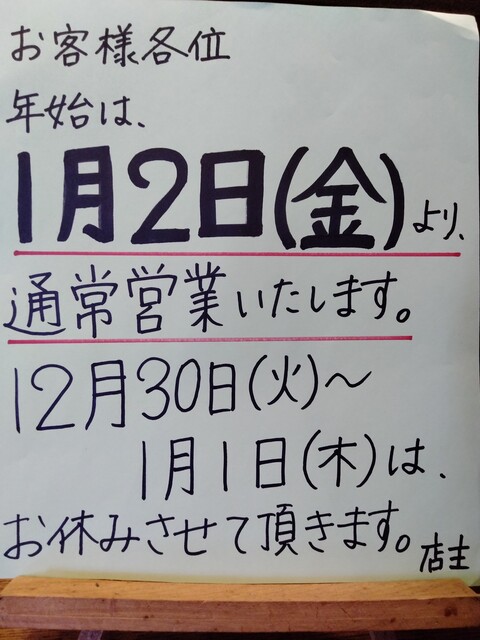 お客様各位
年始は、
1月2日(金)より、
通常営業いたします。
12月30日(火)～
1月1日(木)は、
お休みさせて頂きます。
店主